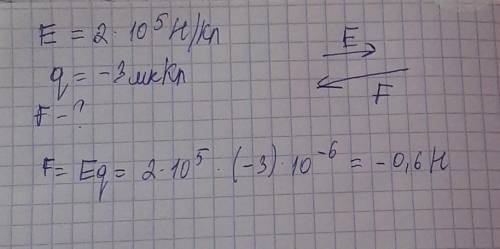 E = 2 · 10⁵ Н/Кл
q = -3 мкКл
F - ?
E
F
F = Eq = 2·10⁵ · (-3) · 10⁻⁶ = -0,6 Н